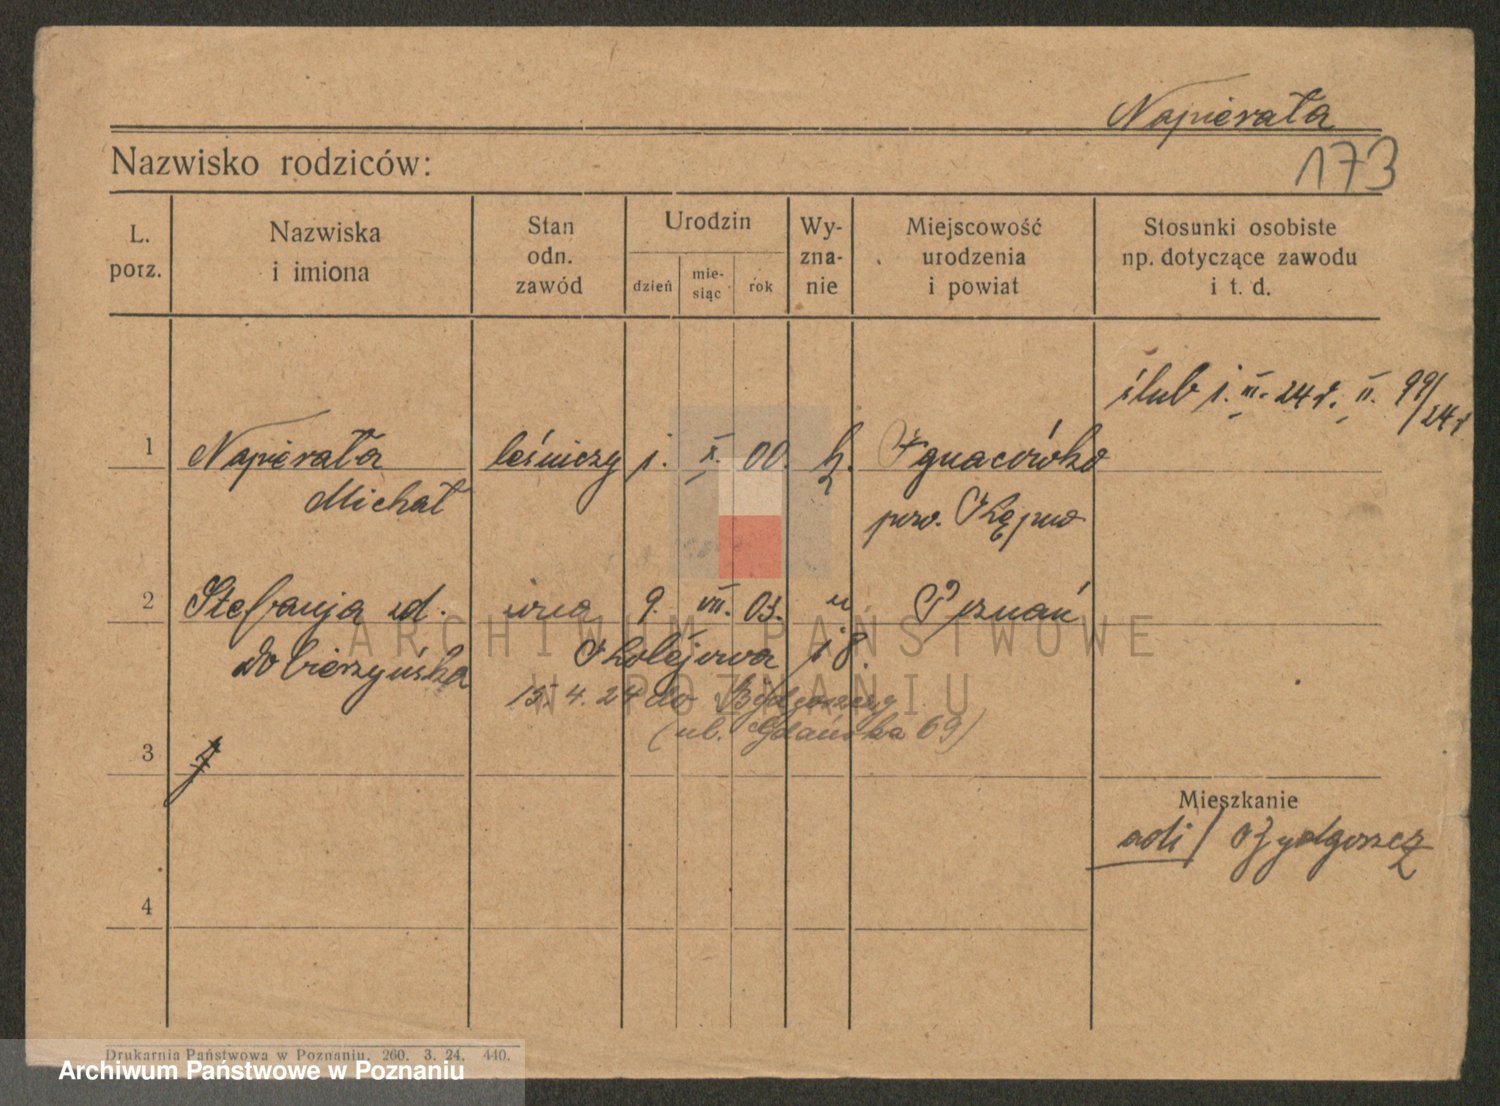 Napierała
Nazwisko rodziców:
173
L. porz.
Nazwiska i imiona
Stan odn. zawód
Urodzin
dzień
mie-siąc
rok
Wy-zna-nie
Miejscowość urodzenia i powiat
Stosunki osobiste np. dotyczące zawodu i t. d.
ślub 1. XI. 24 r. II. 99/24 r
1 Napierała leśniczy 1. X. 00. k. Ignacówko
Michał pow. Kępno
2 Stefanja zd. 9. VII. 03. " Poznań
Dobierzyńska Kolejowa 18.
15. 4. 24 do Bydgoszczy
(ul. Gdańska 69)
3
Mieszkanie
Bydgoszcz
4
ARCHIWUM PAŃSTWOWE
W POZNANIU
Drukarnia Państwowa w Poznaniu. 260. 3. 24. 440.
Archiwum Państwowe w Poznaniu